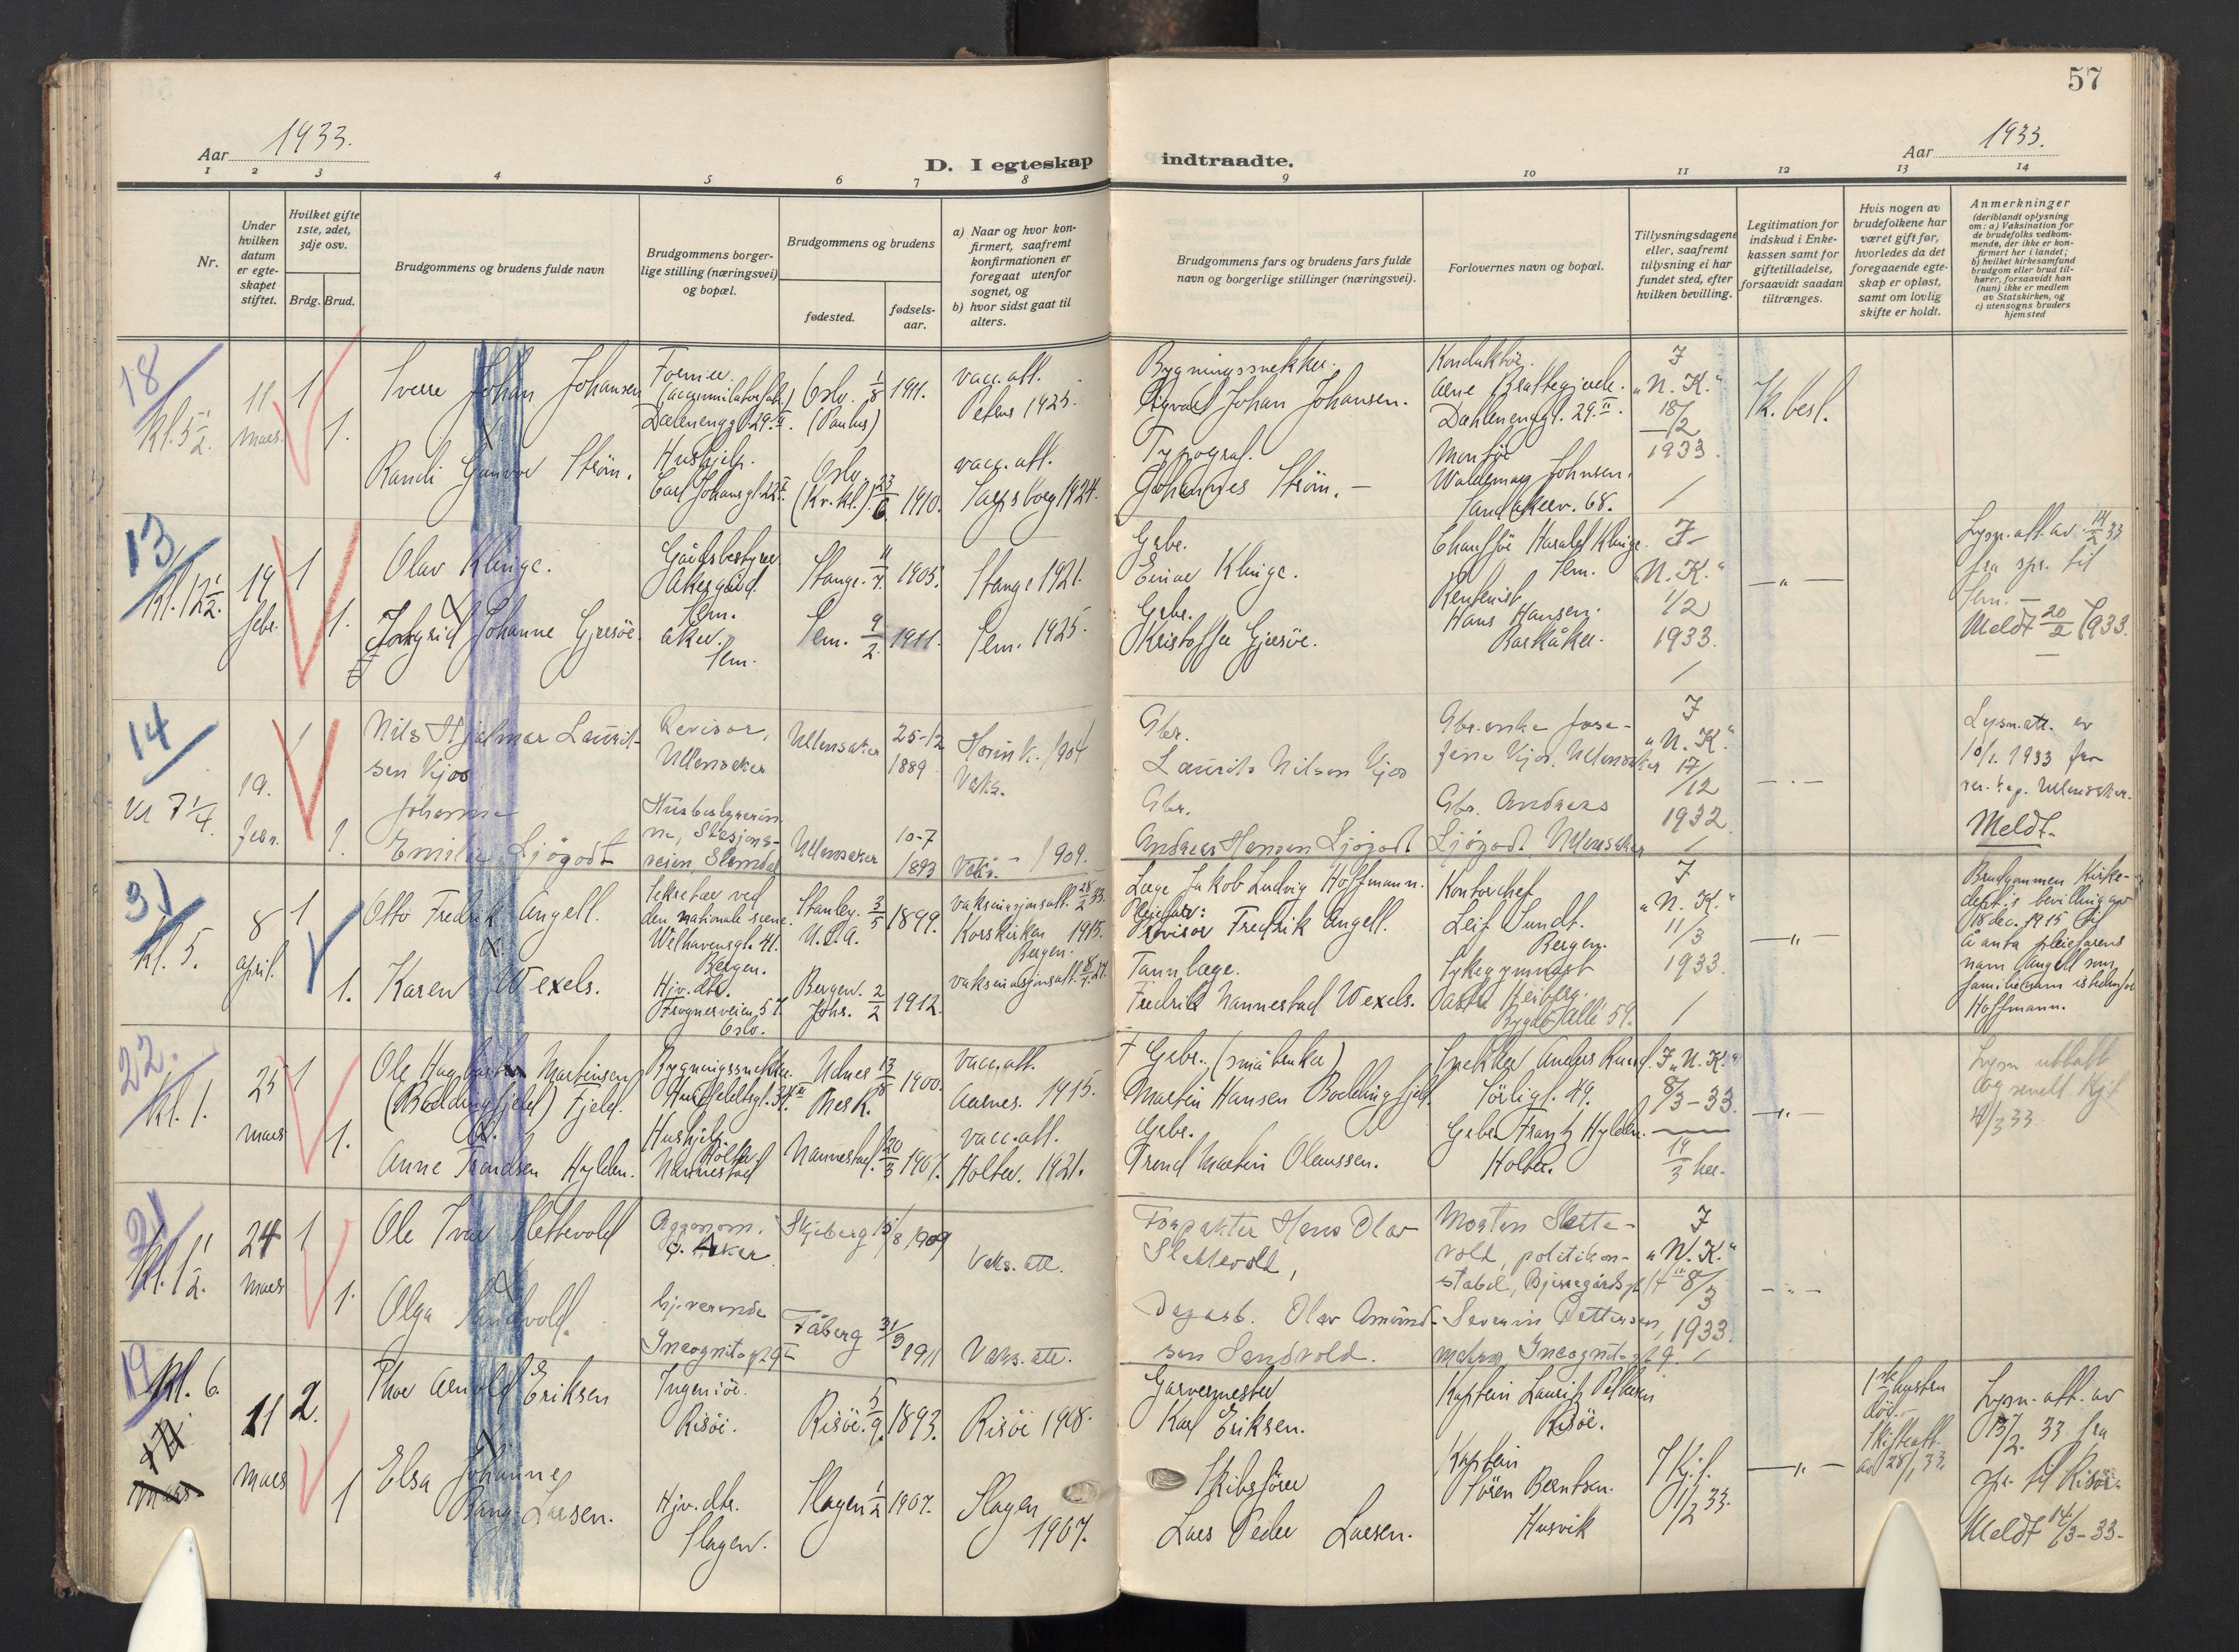 57
Aar 1933.
D. I egteskap indtraadte.
Aar 1933.
1 2 3 4 5 6 7 8 9 10 11 12 13 14
Nr.
Under hvilken datum er egteskapet stiftet.
Hvilket gifte 1ste, 2det, 3dje osv.
Brdg. Brud.
Brudgommens og brudens fulde navn
Brudgommens borgerlige stilling (næringsvei) og bopæl.
Brudgommens og brudens
fødested.
fødselsaar.
a) Naar og hvor konfirmert, saafremt konfirmationen er foregaat utenfor sognet, og
b) hvor sidst gaat til alters.
Brudgommens fars og brudens fars fulde navn og borgerlige stillinger (næringsvei).
Forlovernes navn og bopæl.
Tillysningsdagene eller, saafremt tillysning ei har fundet sted, efter hvilken bevilling.
Legitimation for indskud i Enkekassen samt for giftetilladelse, forsaavidt saadan tiltrænges.
Hvis nogen av brudefolkene har været gift før, hvorledes da det foregaaende egteskap er opløst, samt om lovlig skifte er holdt.
Anmerkninger
(deriblandt oplysning om: a) Vaksination for de brudefolks vedkommende, der ikke er konfirmert her i landet; b) hvilket kirkesamfund brudgom eller brud tilhører, forsaavidt han (hun) ikke er medlem av Statskirken, og c) utensogns bruders hjemsted
18
Kl. 5½.
11 mars.
1
1.
Sverre Johan Johansen
Dælenenggt. 29.II.
Oslo. 1/8 1911.
(Paulus)
vacc. att.
Petrus 1925.
Bygningssnekker.
Sigvart Johan Johansen.
Konduktör.
Arne Brattegjerde.
Dæhlenenggt. 29.II.
J
"N. K."
18/2
1933.
K. besl.
Randi Gunvor Ström.
Hushjelp.
Carl Johansgt. 22.I.
Oslo.
(Kr. kl.) 23/6 1910.
vacc. att.
Sarpsborg 1924.
Typograf.
Johannes Ström. -
Montör
Waldemar Johnsen.
Sandakerv. 68.
13
Kl. 12½.
19 febr.
1
1.
Olav Klinge.
Gårdsbestyrer
Akergård.
Sem.
Stange. 11/7 1905.
Stange 1921.
Grbr.
Einar Klinge.
Chaufför Harald Klinge.
Sem.
J
"N. K."
1/2
1933.
Lysn. att. av 14/2 33
fra spr. til
Sem. -
Meldt 20/2 1933.
Ingrid Johanne Gjersöe.
Aker.
Sem.
Sem. 9/2 1911.
Sem. 1925.
Grbr.
Kristoffer Gjersöe.
Rentenist
Hans Hansen.
Barkåker.
14
Kl 7¼.
19. febr.
1
1.
Nils Hjalmar Laurit-
sen Kjos
Revisor,
Ullensaker
Ullensaker
25-12
1889
Hovin k. 1904
Vaks.
Gbr.
Laurits Nilsen Kjos
Gbr.enke Jose-
fine Kjos, Ullensaker
J
"N. K."
17/12
1932
Lysn.att. av
10/1. 1933 fra
Ullensaker.
Meldt.
Johanne
Emilie Ljögodt
Husbestyrerin-
ne, Stasjons-
veien, Slemdal
Ullensaker
10-7
1893
Vaks. - 1909.
Gbr.
Andreas Hansen Ljögodt
Gbr. Andreas
Ljögodt, Ullensaker
31
Kl. 5.
8 april.
1
1.
Otto Fredrik Angell.
Sekretær ved
den nationale scene.
Welhavensgt. 41.
Bergen.
Stanley. 3/5 1899.
U.S.A.
Vaksinasjonsatt. 28/2 33.
Korskirken 1915.
Bergen.
Læge Jakob Ludvig Hoffmann.
Pleiefar:
Revisor Fredrik Angell.
Kontorchef
Leif Sundt.
Bergen.
J
"N. K."
11/3
1933.
Brudgommen Kirke-
dept.s bevilling av
18 dec. 1915 til
å anta pleiefarens
navn Angell som
familienavn istedenfor
Hoffmann.
Karen Wexels.
Hjv. dtr.
Frognerveien 57.
Oslo.
Bergen. 2/2 1912.
Johs.
Vaksinasjonsatt.
Tannlæge.
Fredrik Nannestad Wexels.
Sykegymnast
Heiberg.
Bygdö Allé 59.
22.
Kl. 1.
25 mars
1
1.
Ole Hagbart Martinsen
(Boddingfjeld) Fjeld.
Bygningssnekker.
Udnes 13/8 1900.
Nesk.
Vacc. att.
Aarnes. 1915.
Gbr. (småbruker)
Martin Hansen Boddingfjeld.
Snekker Anders Rund.
Sörligt. 49.
J "N. K."
8/3-33.
14/3 her.
Lysn utbalt
og sendt
Anne Trondsen Hylden.
Hushjelp
Holter
Nannestad
Nannestad. 20/3 1907.
vacc. att.
Holter. 1921.
Gbr.
Trond Martin Olaussen.
Gbr. Frantz Hylden.
Holter.
21
Kl. 1½.
24 mars
1
1.
Ole Ivar Slettevold
Agronom.
Ö. Aker.
Skjeberg 15/8 1909
Vaks. att.
Forpakter Hans Olav
Slettevold,
Morten Slette-
vold, politikon-
stabel, Bjerregårdsgt 14
J
"N. K."
8/3
1933.
Olga Sandvold.
hj. værende
Incognitogt 29
Fåberg 31/3 1911
Vaks. att.
Dagarb. Olav Amund-
sen Sandvold.
Severin Pettersen,
Incognitogt 29.
19
Kl. 6.
11 mars
2.
1
Thor Arnold Eriksen
Ingeniör.
Risör.
Risör. 5/9. 1893.
Risör 1908.
Garvermester
Karl Eriksen.
Kaptein Lauritz Pettersen
Risör.
J Kjf.
11/2 33.
1ste hustru
död.
Skifteatt.
av 28/1 33.
Lysn. att. av
13/2. 33 fra
spr. til Risör.
Meldt 14/3-33.
Elsa Johanne
Bang-Larsen.
Hjv. dtr.
Slagen.
Slagen 1/2 1907.
Slagen
Skibsförer
Lars Peder Larsen.
Kaptein
Sören Berntsen.
Husvik